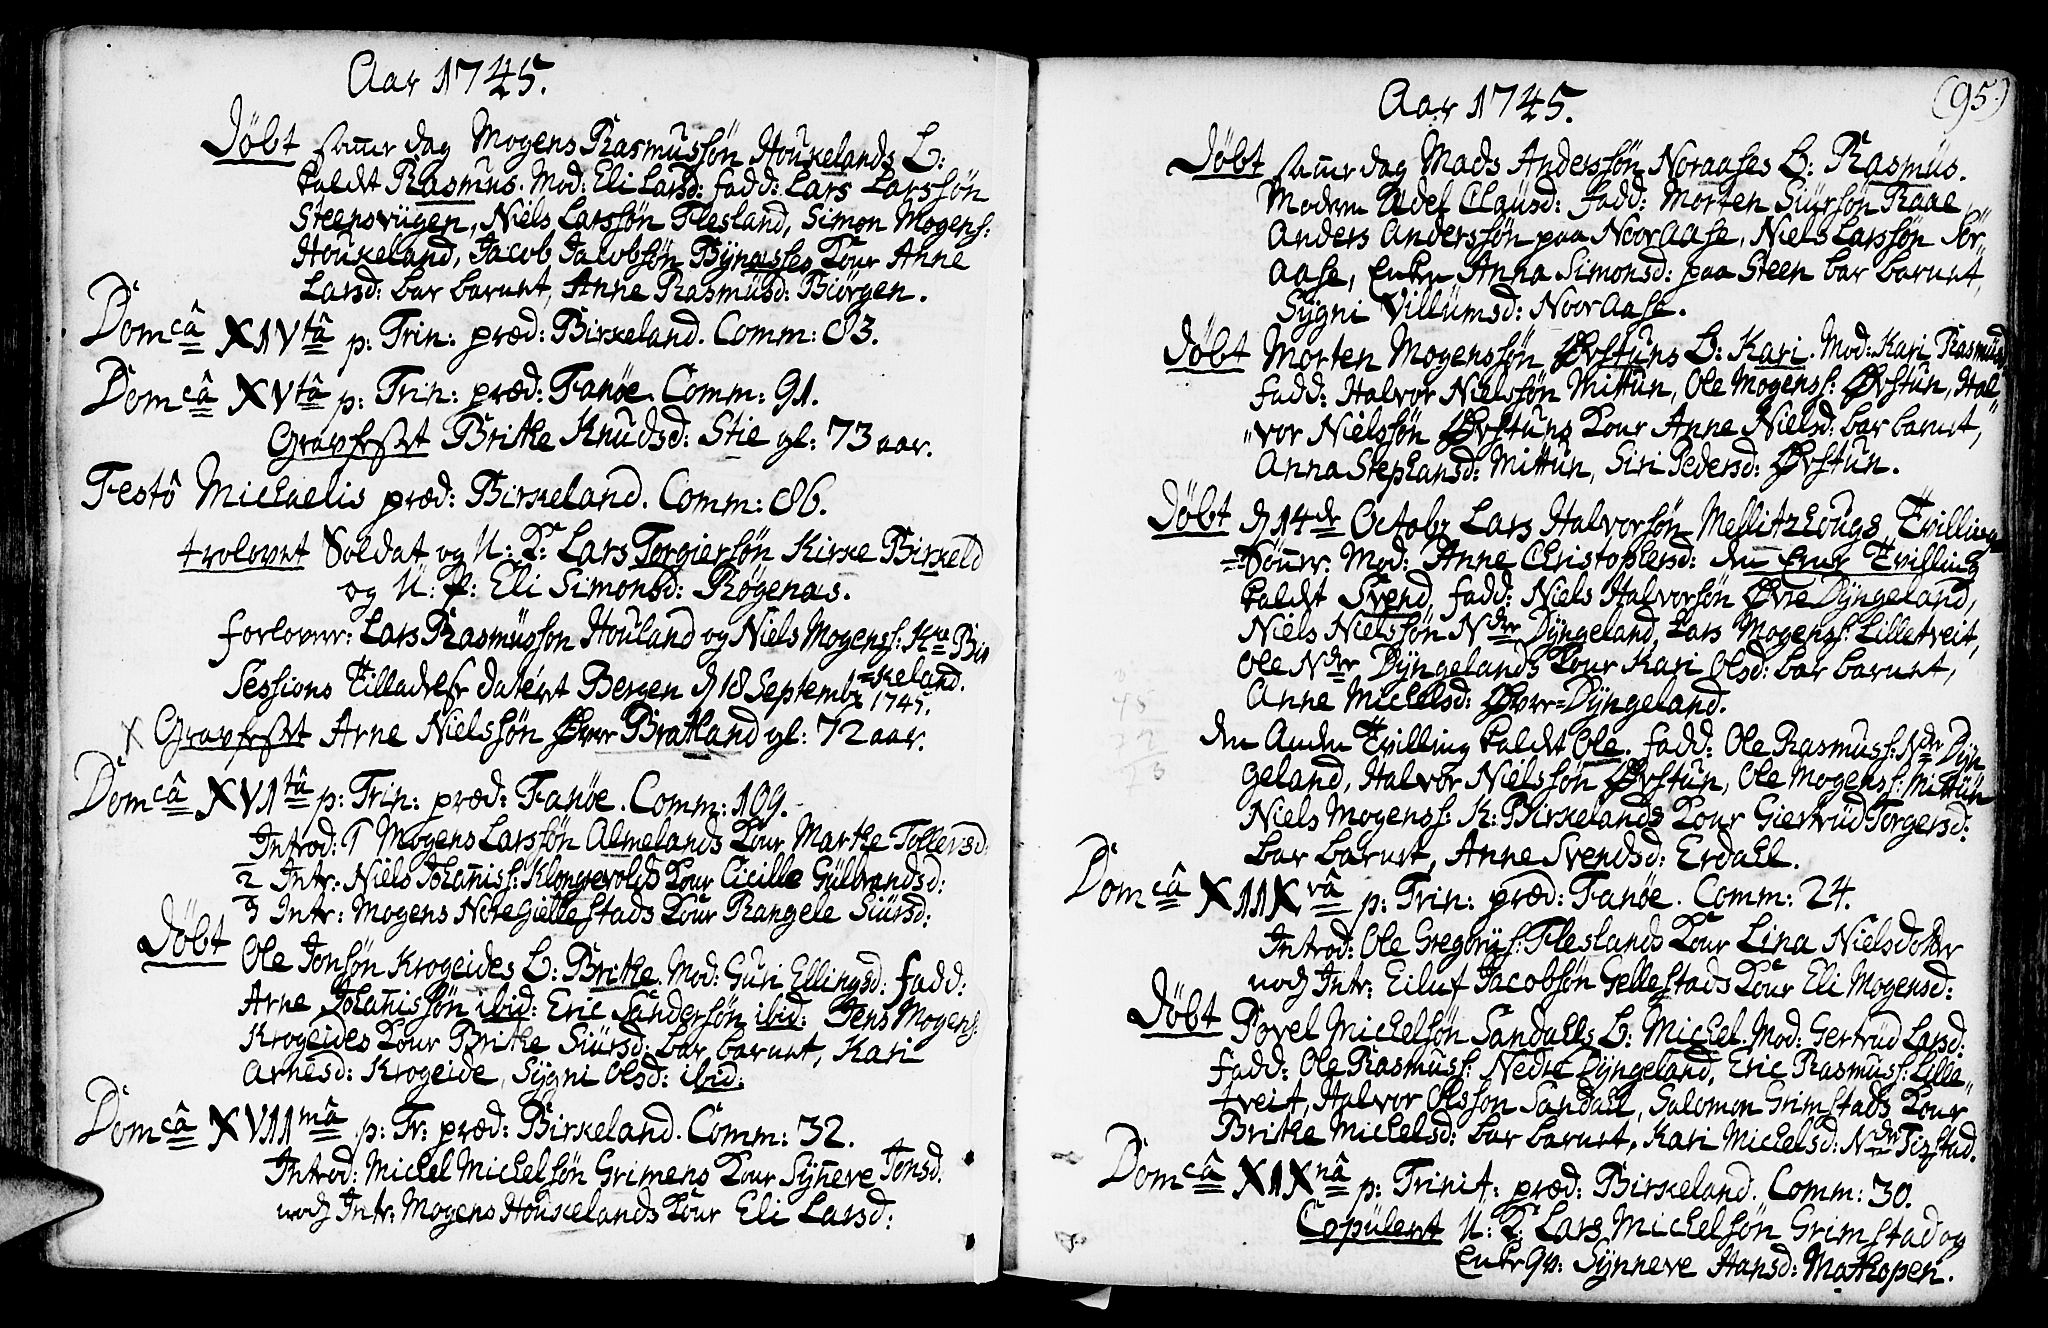 Aar 1745.
Døbt samme dag Mogens Rasmussøn Houkelands B:
kaldt Rasmus. Mod: Eli Larsd: fadd: Lars Larssøn
Steensviigen, Niels Larssøn Flesland, Simon Mogens:
Houkeland, Jacob Jacobsøn Bÿnæsses Kone Anne
Larsd: bar barnet, Anne Rasmusd: Biørgen.
Domcâ XIVtâ p: Trin: præd: Birkeland. Comm: 83.
Domcâ XVtâ p: Trin: præd: Fanøe. Comm: 91.
Gravfest Brithe Knudsd: Stie gl: 73 aar.
Festô Michaelis præd: Birkeland. Comm: 86.
trolovet Soldat og U: K: Lars Torgiersøn Kirke Birkeld
og U: P: Eli Simonsd: Røgenæs.
forlovere: Lars Rasmussøn Houland og Niels Mogens: Kne Bir
=keland.
Sessions Tilladelse datert Bergen d 18 Septembr 1745.
X Gravfest Arne Nielssøn Øvre Bratland gl: 72 aar.
Domcâ XVItâ p: Trin: præd: Fanøe. Comm: 109.
Introd: 1 Mogens Larssøn Almelands Kone Marthe Tollevsd:
2 Intr: Niels Johanis: Klongevolds Kone Cicille Gulbrandsd:
3 Intr: Mogens Nore Giellestads Kone Rangele Siursd:
Døbt Ole Jonsøn Krogeides B: Brithe. Mod: Guri Ellingsd: fadd:
Arne Johanissøn ibid: Eric Sandersøn ibid: Jens Mogens:
Krogeides Kone Brithe Siursd: bar barnet, Kari
Arnesd: Krogeide, Sÿgni Olsd: ibid:
Domcâ XVIImâ p: Tr: præd: Birkeland. Comm: 32.
Introd: Michel Michelsøn Grimens Kone Sÿneve Jonsd.
nock Intr: Mogens Houkelands Kone Eli Larsd:
(95.)
Aar 1745.
Døbt samme dag Mads Anderssøn Noraases B: Rasmus.
Moderen Adel Clausd: fadd: Morten Siursøn Raae,
Anders Anderssøn paa Nooraase, Niels Larssøn Sør
aase, Enken Anna Simonsd: paa Steen bar barnet,
Sÿgni Villumsd: Nooraase.
Døbt Morten Mogenssøn Øvstuns B: Kari. Mod: Kari Rasmusd
fadd: Halvor Nielssøn Mittun, Ole Mogens: Øvstun, Hal„
„vor Nielssøn Øvstuns Kone Anne Nielsd: bar barnet,
Anna Stephansd: Mittun, Siri Pedersd: Øvstun.
Døbt d 14de Octobr Lars Halvorsøn Mellitzhougs Tvillinge
=Sønner. Mod: Anne Christophersd: den eene Tvilling
kaldt Svend, fadd: Niels Halvorsøn Øvre Dÿngeland,
Niels Nielssøn Ndre Dÿngeland, Lars Mogens: Lilletveit,
Ole Ndre Dÿngelands Kone Kari Olsd: bar barnet,
Anne Michelsd: Øvre=Dÿngeland.
den Anden Tvilling kaldt Ole. fadd: Ole Rasmus: Ndre Dÿn
geland, Halvor Nielssøn Øvstun, Ole Mogens: Mittun
Niels Mogens: K: Birkelands Kone Giertrud Torgersd:
bar barnet, Anne Svendsd: Erdahl.
Domcâ XIIXvâ p: Trin: præd: Fanøe. Comm: 24.
Introd: Ole Gregorius: Fleslands Kone Lina Nielsdotter
nock Intr: Eiluf Jacobsøn Gellestads Kone Eli Mogensd:
Døbt Povel Michelsøn Sandahls B: Michel. Mod: Gertrud Larsd:
fadd: Ole Rasmus: Nedre Dÿngeland, Eric Rasmus: Lille„
tveit, Halvor Olssøn Sandahl, Salomon Grimstads Kone
Brithe Michelsd: bar barnet, Kari Michelsd: Ndre Titzstad.
Domcâ XIXnâ p: Trinit: præd: Birkeland. Comm: 30.
Copulert U: K: Lars Michelsøn Grimstad og
Enke Qv: Sÿnneve Hansd: Mathopen.